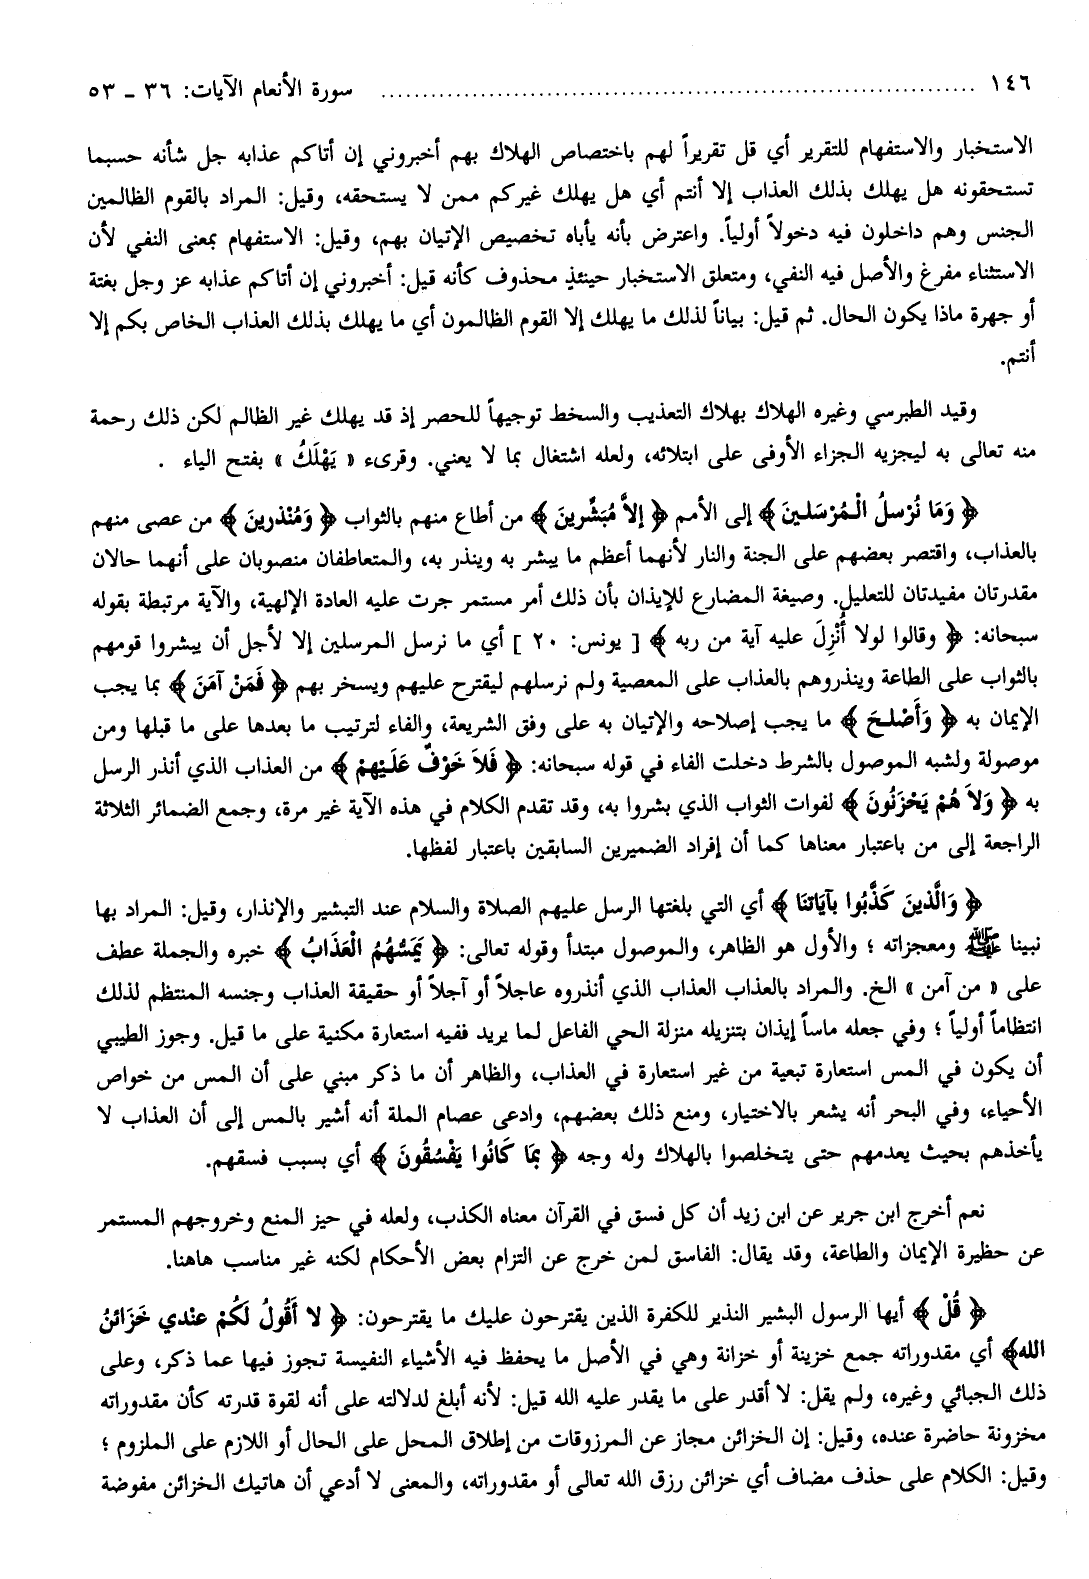 ١٤٦ .......................................................................... سورة الأنعام الآيات: ٣٦ ـ ٥٣
الاستخبار والاستفهام للتقرير أي قل تقريراً لهم باختصاص الهلاك بهم أخبروني إن أتاكم عذابه جل شأنه حسبما
تستحقونه هل يهلك بذلك العذاب إلا أنتم أي هل يهلك غيركم ممن لا يستحقه، وقيل: المراد بالقوم الظالمين
الجنس وهم داخلون فيه دخولاً أولياً. واعترض بأنه يأباه تخصيص الإتيان بهم، وقيل: الاستفهام بمعنى النفي لأن
الاستثناء مفرغ والأصل فيه النفي، ومتعلق الاستخبار حينئذٍ محذوف كأنه قيل: أخبروني إن أتاكم عذابه عز وجل بغتة
أو جهرة ماذا يكون الحال. ثم قيل: بياناً لذلك ما يهلك إلا القوم الظالمون أي ما يهلك بذلك العذاب الخاص بكم إلا
أنتم.
وقيد الطبرسي وغيره الهلاك بهلاك التعذيب والسخط توجيهاً للحصر إذ قد يهلك غير الظالم لكن ذلك رحمة
منه تعالى به ليجزيه الجزاء الأوفى على ابتلائه، ولعله اشتغال بما لا يعني. وقرىء « يَهْلَكُ » بفتح الياء .
﴿ وَمَا نُرْسلُ الْـمُرْسَلينَ ﴾ إلى الأمم ﴿ إلاَّ مُبَشِّرينَ ﴾ من أطاع منهم بالثواب ﴿ وَمُنْذرينَ ﴾ من عصى منهم
بالعذاب، واقتصر بعضهم على الجنة والنار لأنهما أعظم ما يبشر به وينذر به، والمتعاطفان منصوبان على أنهما حالان
مقدرتان مفيدتان للتعليل. وصيغة المضارع للإيذان بأن ذلك أمر مستمر جرت عليه العادة الإلهية، والآية مرتبطة بقوله
سبحانه: ﴿ وقالوا لولا أُنْزِلَ عليه آية من ربه ﴾ [ يونس: ٢٠ ] أي ما نرسل المرسلين إلا لأجل أن يبشروا قومهم
بالثواب على الطاعة وينذروهم بالعذاب على المعصية ولم نرسلهم ليقترح عليهم ويسخر بهم ﴿ فَمَنْ آمَنَ ﴾ بما يجب
الإيمان به ﴿ وَأَصْلـحَ ﴾ ما يجب إصلاحه والإتيان به على وفق الشريعة، والفاء لترتيب ما بعدها على ما قبلها ومن
موصولة ولشبه الموصول بالشرط دخلت الفاء في قوله سبحانه: ﴿ فَلاَ خَوْفٌ عَلَيْهمْ ﴾ من العذاب الذي أنذر الرسل
به ﴿ وَلاَ هُمْ يَحْزَنُونَ ﴾ لفوات الثواب الذي بشروا به، وقد تقدم الكلام في هذه الآية غير مرة، وجمع الضمائر الثلاثة
الراجعة إلى من باعتبار معناها كما أن إفراد الضميرين السابقين باعتبار لفظها.
﴿ وَالَّذينَ كَذَّبُوا بآيَاتنَا ﴾ أي التي بلغتها الرسل عليهم الصلاة والسلام عند التبشير والإنذار، وقيل: المراد بها
نبينا ﷺ ومعجزاته ؛ والأول هو الظاهر، والموصول مبتدأ وقوله تعالى: ﴿ يَمَسُّهُمُ الْعَذَابُ ﴾ خبره والجملة عطف
على « من آمن » الخ. والمراد بالعذاب العذاب الذي أنذروه عاجلاً أو آجلاً أو حقيقة العذاب وجنسه المنتظم لذلك
انتظاماً أولياً ؛ وفي جعله ماساً إيذان بتنزيله منزلة الحي الفاعل لما يريد ففيه استعارة مكنية على ما قيل. وجوز الطيبي
أن يكون في المس استعارة تبعية من غير استعارة في العذاب، والظاهر أن ما ذكر مبني على أن المس من خواص
الأحياء، وفي البحر أنه يشعر بالاختيار، ومنع ذلك بعضهم، وادعى عصام الملة أنه أشير بالمس إلى أن العذاب لا
يأخذهم بحيث يعدمهم حتى يتخلصوا بالهلاك وله وجه ﴿ بمَا كَانُوا يَفْسُقُونَ ﴾ أي بسبب فسقهم.
نعم أخرج ابن جرير عن ابن زيد أن كل فسق في القرآن معناه الكذب، ولعله في حيز المنع وخروجهم المستمر
عن حظيرة الإيمان والطاعة، وقد يقال: الفاسق لـمن خرج عن التزام بعض الأحكام لكنه غير مناسب هاهنا.
﴿ قُلْ ﴾ أيها الرسول البشير النذير للكفرة الذين يقترحون عليك ما يقترحون: ﴿ لا أَقُولُ لَكُمْ عندي خَزَائنُ
الله﴾ أي مقدوراته جمع خزينة أو خزانة وهي في الأصل ما يحفظ فيه الأشياء النفيسة تجوز فيها عما ذكر، وعلى
ذلك الجبائي وغيره، ولم يقل: لا أقدر على ما يقدر عليه الله قيل: لأنه أبلغ لدلالته على أنه لقوة قدرته كأن مقدوراته
مخزونة حاضرة عنده، وقيل: إن الخزائن مجاز عن المرزوقات من إطلاق المحل على الحال أو اللازم على الملزوم ؛
وقيل: الكلام على حذف مضاف أي خزائن رزق الله تعالى أو مقدوراته، والمعنى لا أدعي أن هاتيك الخزائن مفوضة